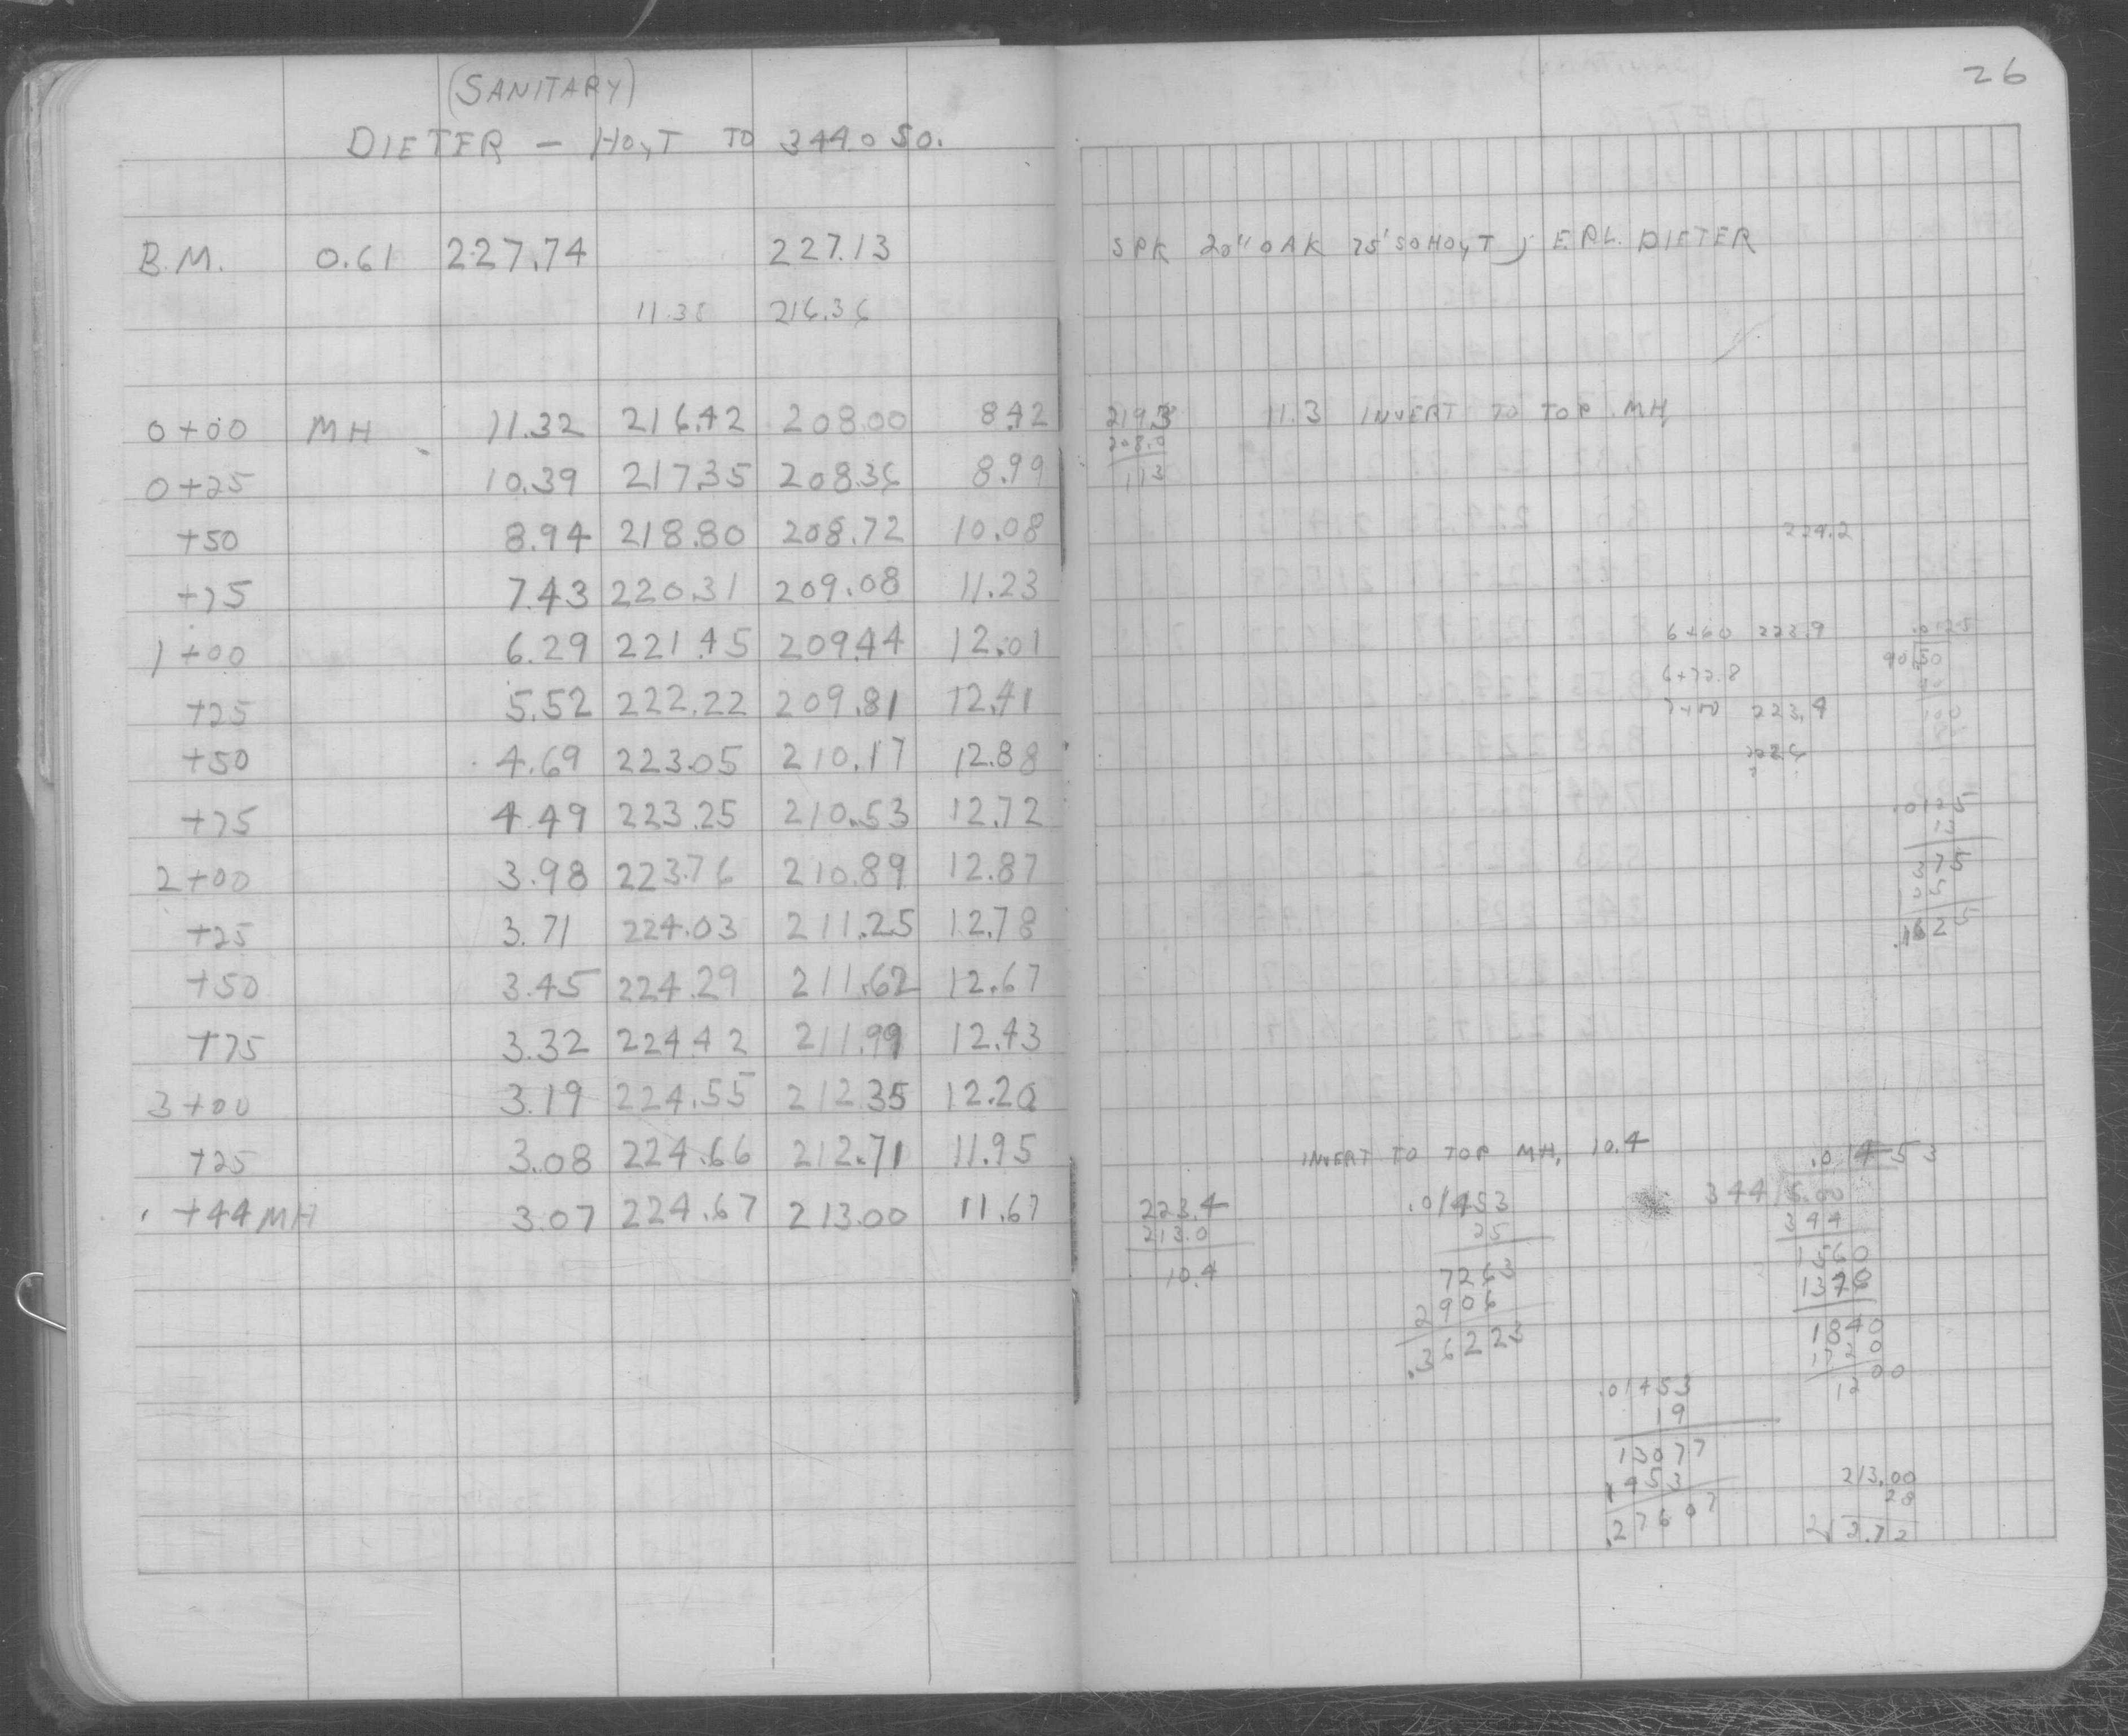 (SANITARY)
DIETER - HOYT TO 344.0 SO.
B.M. 0.61 227.74 227.13
11.38 216.36
0+00 MH 11.32 216.42 208.00 8.42
0+25 10.39 217.35 208.36 8.99
+50 8.94 218.80 208.72 10.08
+75 7.43 220.31 209.08 11.23
1+00 6.29 221.45 209.44 12.01
+25 5.52 222.22 209.81 12.41
+50 4.69 223.05 210.17 12.88
+75 4.49 223.25 210.53 12.72
2+00 3.98 223.76 210.89 12.87
+25 3.71 224.03 211.25 12.78
+50 3.45 224.29 211.62 12.67
+75 3.32 224.42 211.99 12.43
3+00 3.19 224.55 212.35 12.20
+25 3.08 224.66 212.71 11.95
+44 MH 3.07 224.67 213.00 11.67
26
SPK 20" OAK 75' SO HOYT J EPL. DIETER
219.3 11.3 INVERT TO TOP MH,
208.0
113
224.2
6+60 223.9
6+72.8
7+00 223.4
.0125
90 50
.0125
13
375
.1625
INVERT TO TOP MH, 10.4
223.4
213.0
10.4
.01453
25
7263
2906
.36223
.01453
344 5.00
344
1560
1376
1840
1720
1200
.01453
19
13077
1453
.27607
213.00
28
212.72